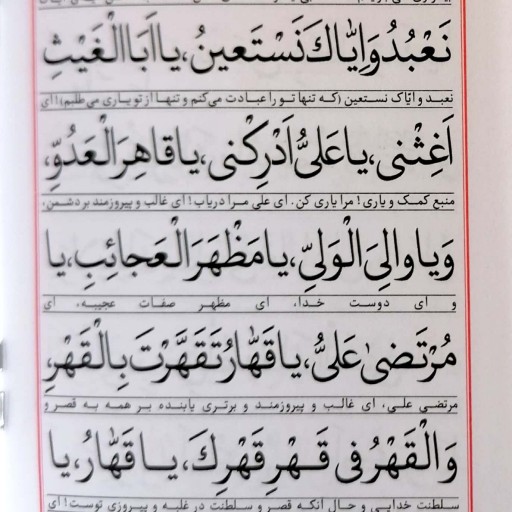 نَعْبُدُ وَاِيّاكَ نَسْتَعينُ، يا اَبَا الْغَيْثِ
نعبد و ایّاک نستعین (که تنها تو را عبادت می‌کنم و تنها از تو یاری می‌طلبم) ای
اَغِثْنى، يا عَلىُّ اَدْرِكْنى، يا قاهِرَ الْعَدُوِّ،
منبع کمک و یاری! مرا یاری کن. ای علی مرا دریاب! ای غالب و پیروزمند بر دشمن،
وَيا والِىَ الْوَلِىِّ، يا مَظْهَرَ الْعَجائِبِ، يا
و ای دوست خدا، ای مظهر صفات عجیبه، ای
مُرْتَضىٰ عَلىُّ، يا قَهّارُ تَقَهَّرْتَ بِالْقَهْرِ،
مرتضی علی. ای غالب و پیروزمند و برتری یابنده بر همه به قصر و
وَ الْقَهْرُ فى قَهْرِ قَهْرِكَ، يا قَهّارُ، يا
سلطنت خدایی و حال آنکه قصر و سلطنت در غلبه و پیروزی توست! ای